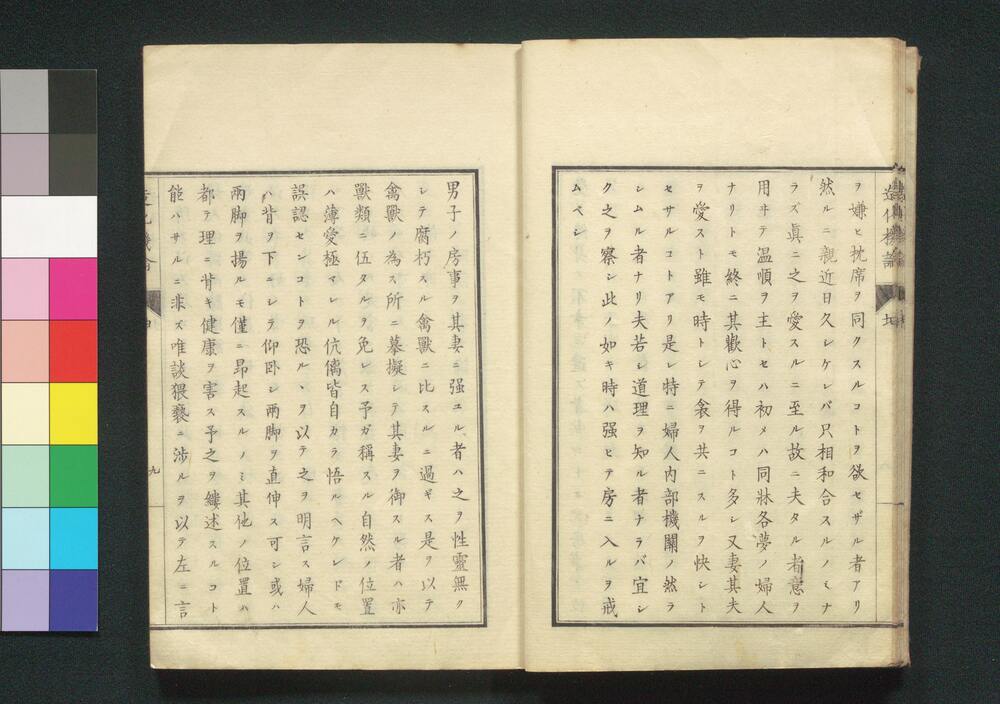 ヲ嫌ヒ枕席ヲ同クスルコトヲ欲セザル者アリ
然ルニ親近日久シケレバ只相和合スルノミナ
ラズ眞ニ之ヲ愛スルニ至ル故ニ夫タル者意ヲ
用ヰテ温順ヲ主トセハ初メハ同牀各夢ノ婦人
ナリトモ終ニ其歡心ヲ得ルコト多シ又妻其夫
ヲ愛スト雖モ時トシテ衾ヲ共ニスルヲ快シト
セサルコトアリ是レ特ニ婦人内部機關ノ然ラ
シムル者ナリ夫若シ道理ヲ知ル者ナラバ宜シ
ク之ヲ察シ此ノ如キ時ハ强ヒテ房ニ入ルヲ戒
ムベシ
男子ノ房事ヲ其妻ニ强ユル者ハ之ヲ性靈無ク
シテ腐朽スル禽獸ニ比スルニ過ギス是ヲ以テ
禽獸ノ為ス所ニ摹擬シテ其妻ヲ御スル者ハ亦
獸類ニ伍タルヲ免レス予ガ稱スル自然ノ位置
ハ薄愛極マレル伉儷皆自カラ悟ルヘケレドモ
誤認センコトヲ恐ルヽヲ以テ之ヲ明言ス婦人
ハ背ヲ下ニシテ仰卧シ兩脚ヲ直伸ス可シ或ハ
兩脚ヲ揚ルモ僅ニ昂起スルノミ其他ノ位置ハ
都テ理ニ背キ健康ヲ害ス予之ヲ縷述スルコト
能ハサルニ非ズ唯談猥褻ニ涉ルヲ以テ左ニ言
九